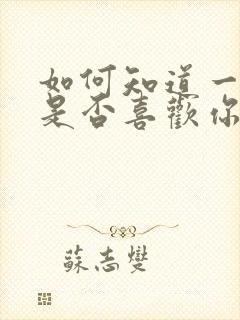 如何知道一
是否喜歡你
蘇志燮